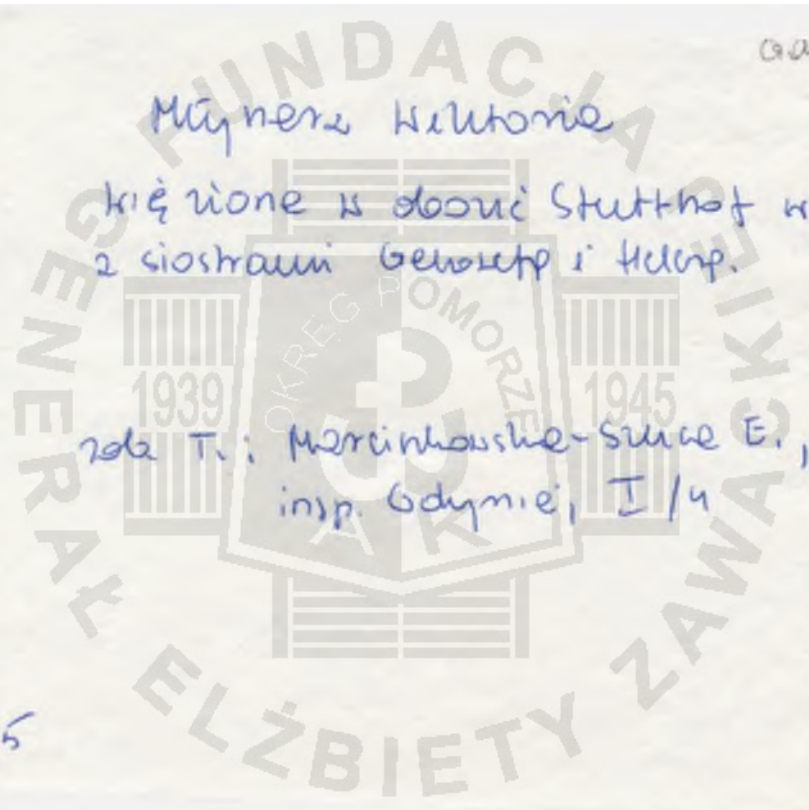 Młynarz Wiktoria
więziona w obozie Stutthof w
z siostrami Genowefą i Heleną.
zob. T.: Marcinkowska-Sulica E.,
insp. Gdynia, I/4
5
FUNDACJA GENERAŁ ELŻBIETY ZAWACKIEJ
OKRĘG POMORZE
1939
1945
AK